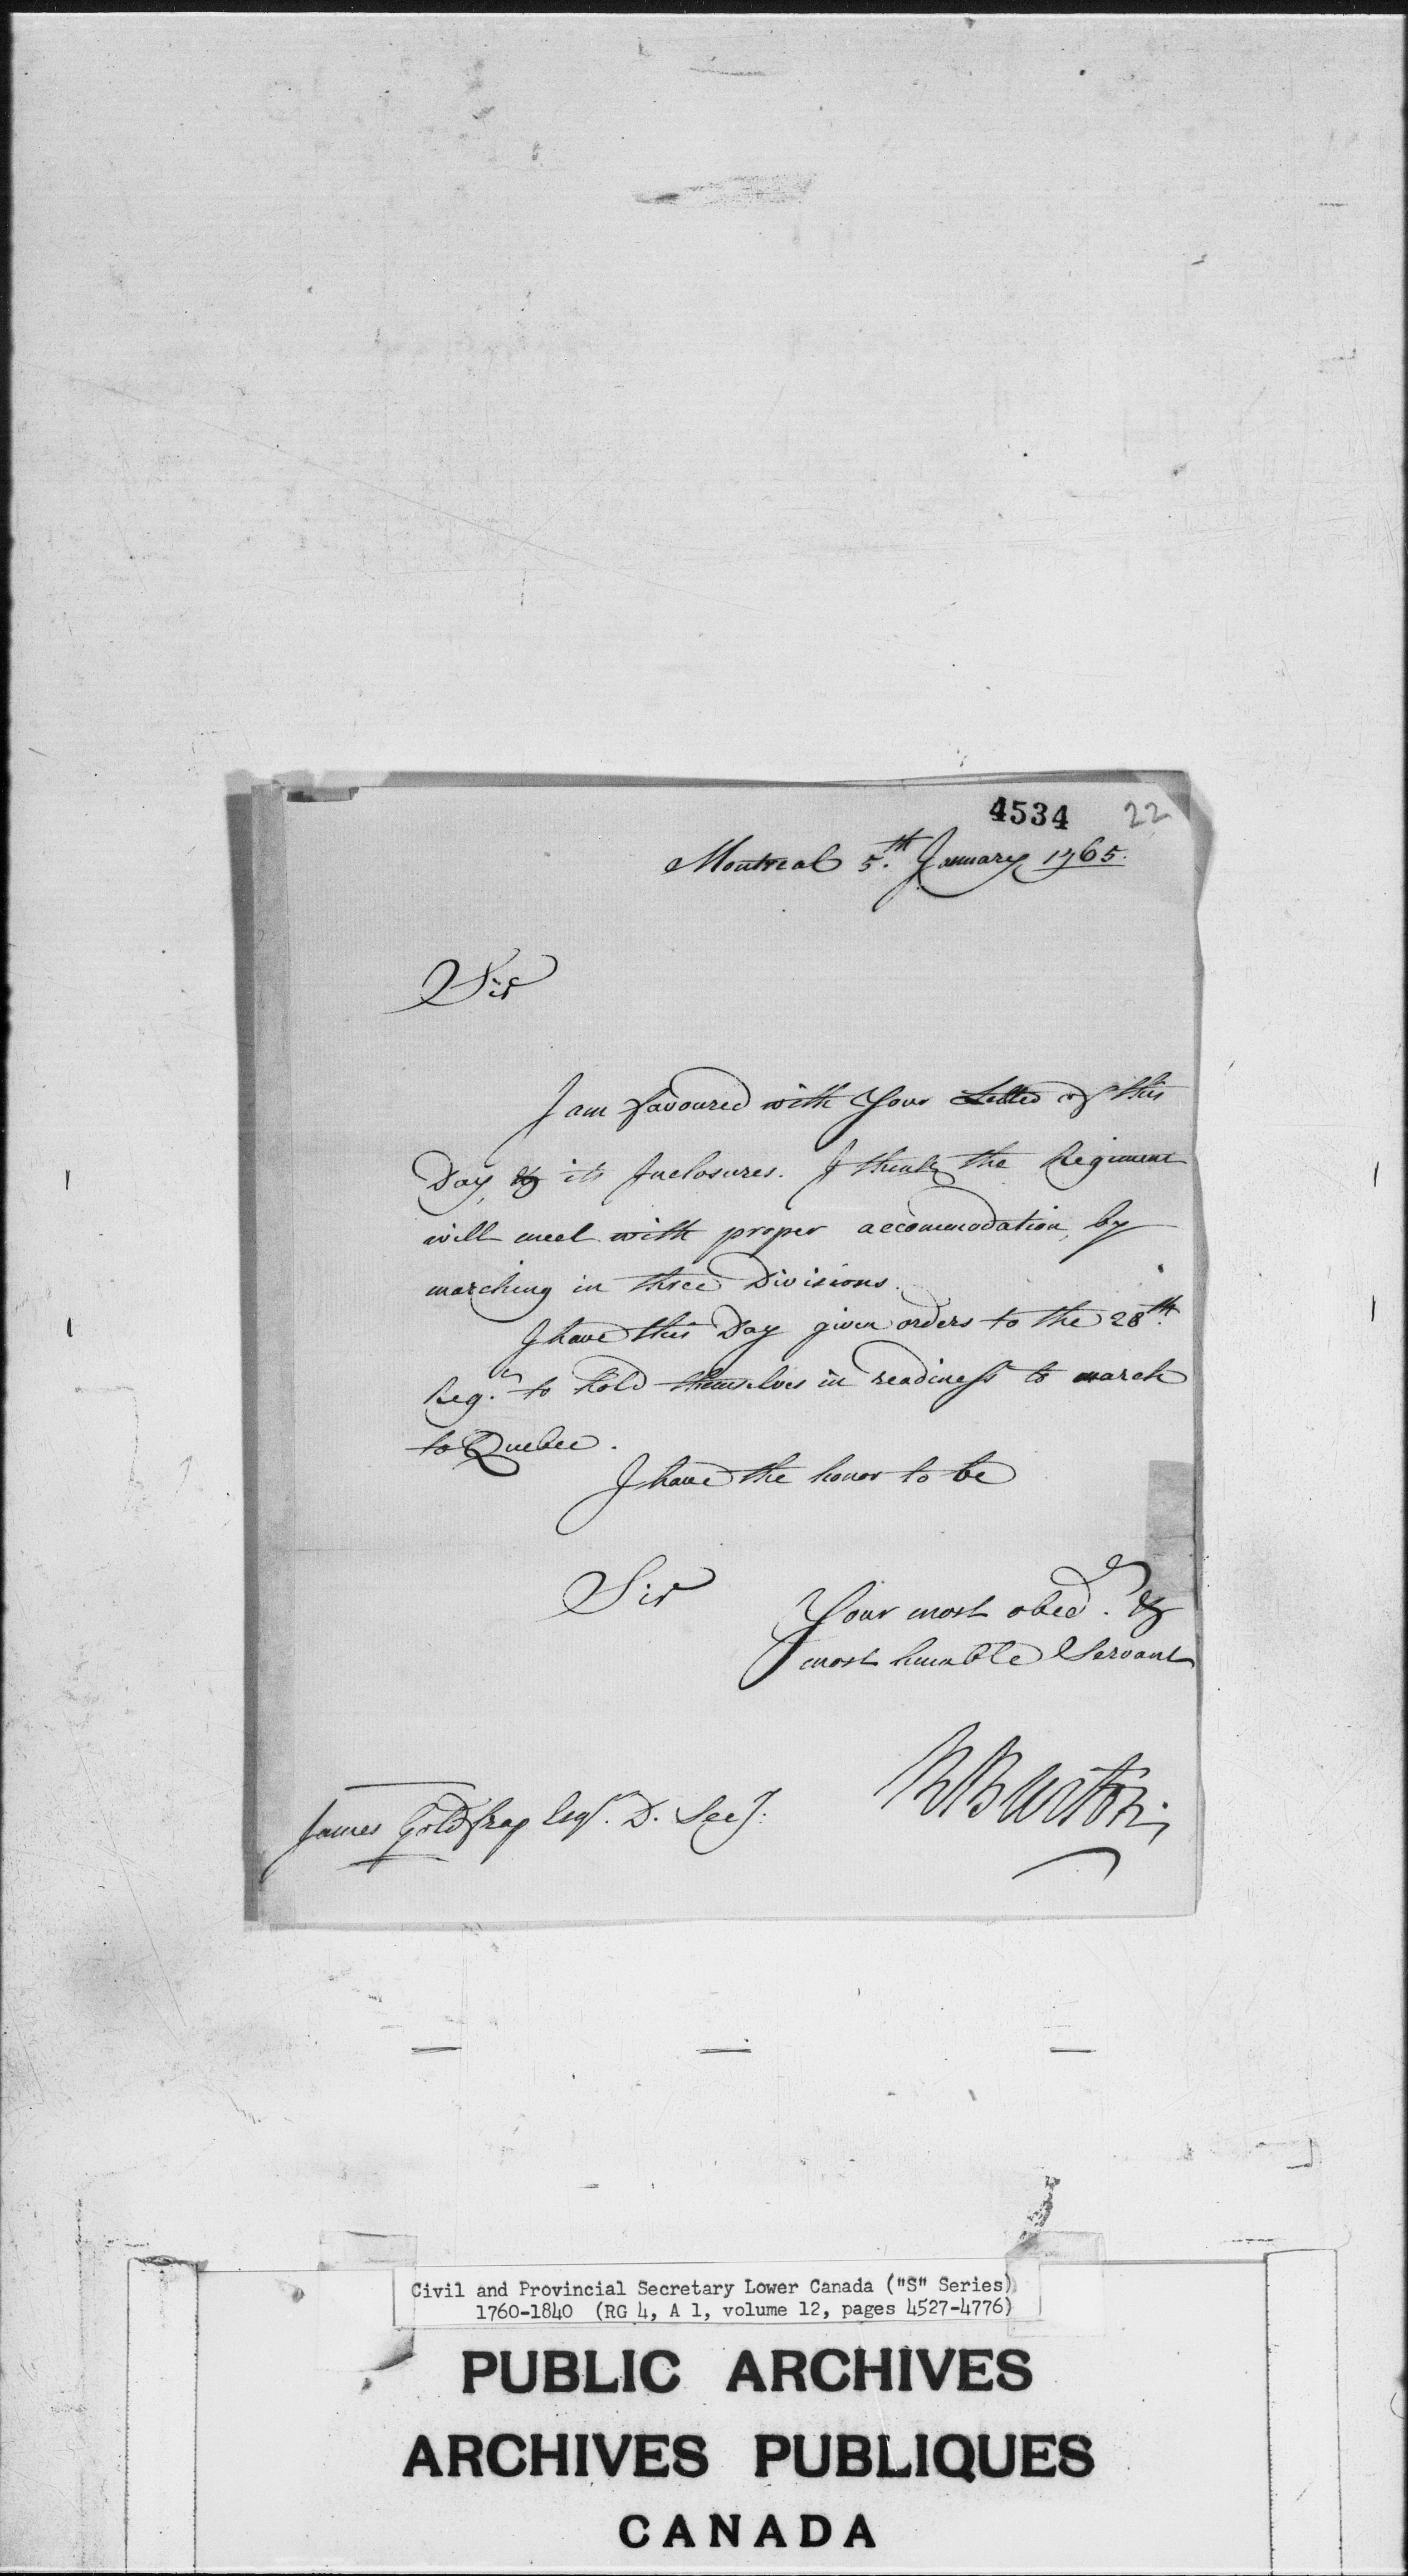 4534 22
Montreal 5.th January 1765.
Sir
I am favoured with Your Letter of this
Day, & its Inclosures. I think the Regiment
will meet with proper accommodation, by
marching in three Divisions.
I have this Day given orders to the 28th.
Reg.t to hold themselves in readiness to march
to Quebec.
I have the honor to be
Sir
Your most obed.t &
most humble Servant
RBurton
James Goldfrap Esqr. D. Secy.
Civil and Provincial Secretary Lower Canada ("S" Series)
1760-1840 (RG 4, A 1, volume 12, pages 4527-4776)
PUBLIC ARCHIVES
ARCHIVES PUBLIQUES
CANADA